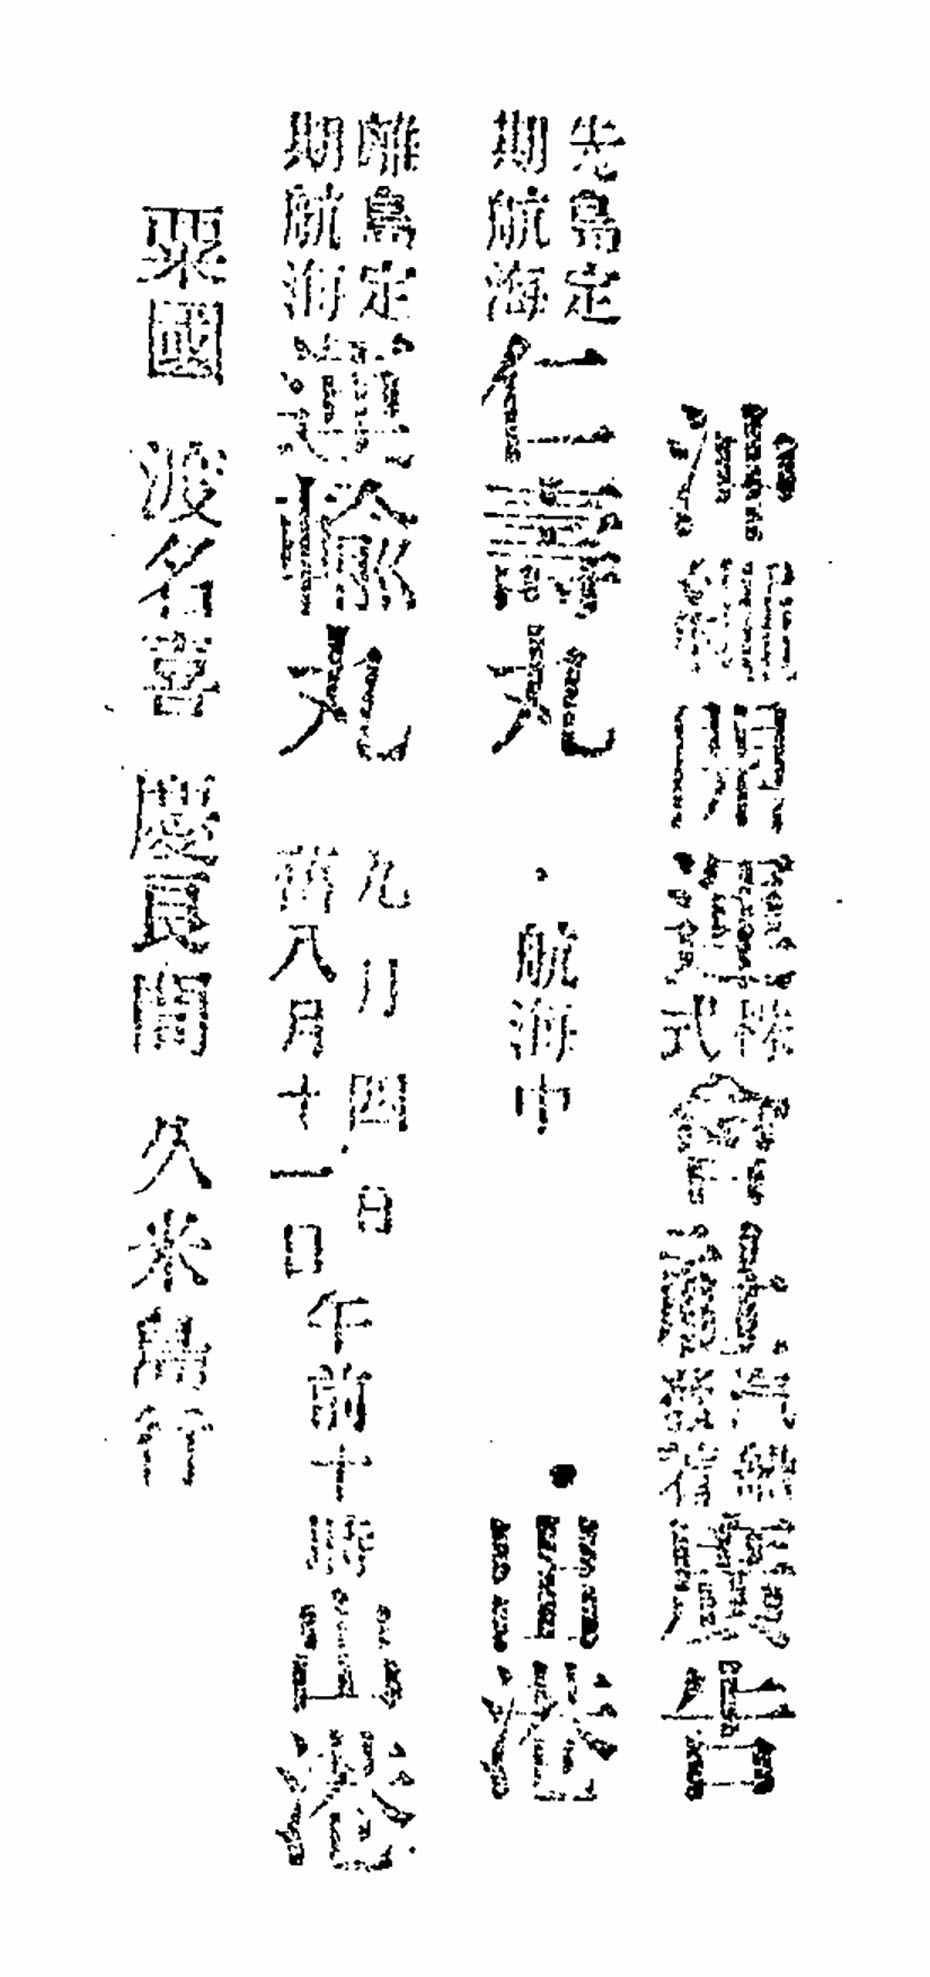 沖縄開運株式會社汽船出港廣告
先島定期航海 仁壽丸 航海中 出港
離島定期航海 運輸丸 九月四日 舊八月十一日 午前十時出港
粟國 渡名喜 慶良間 久米島行